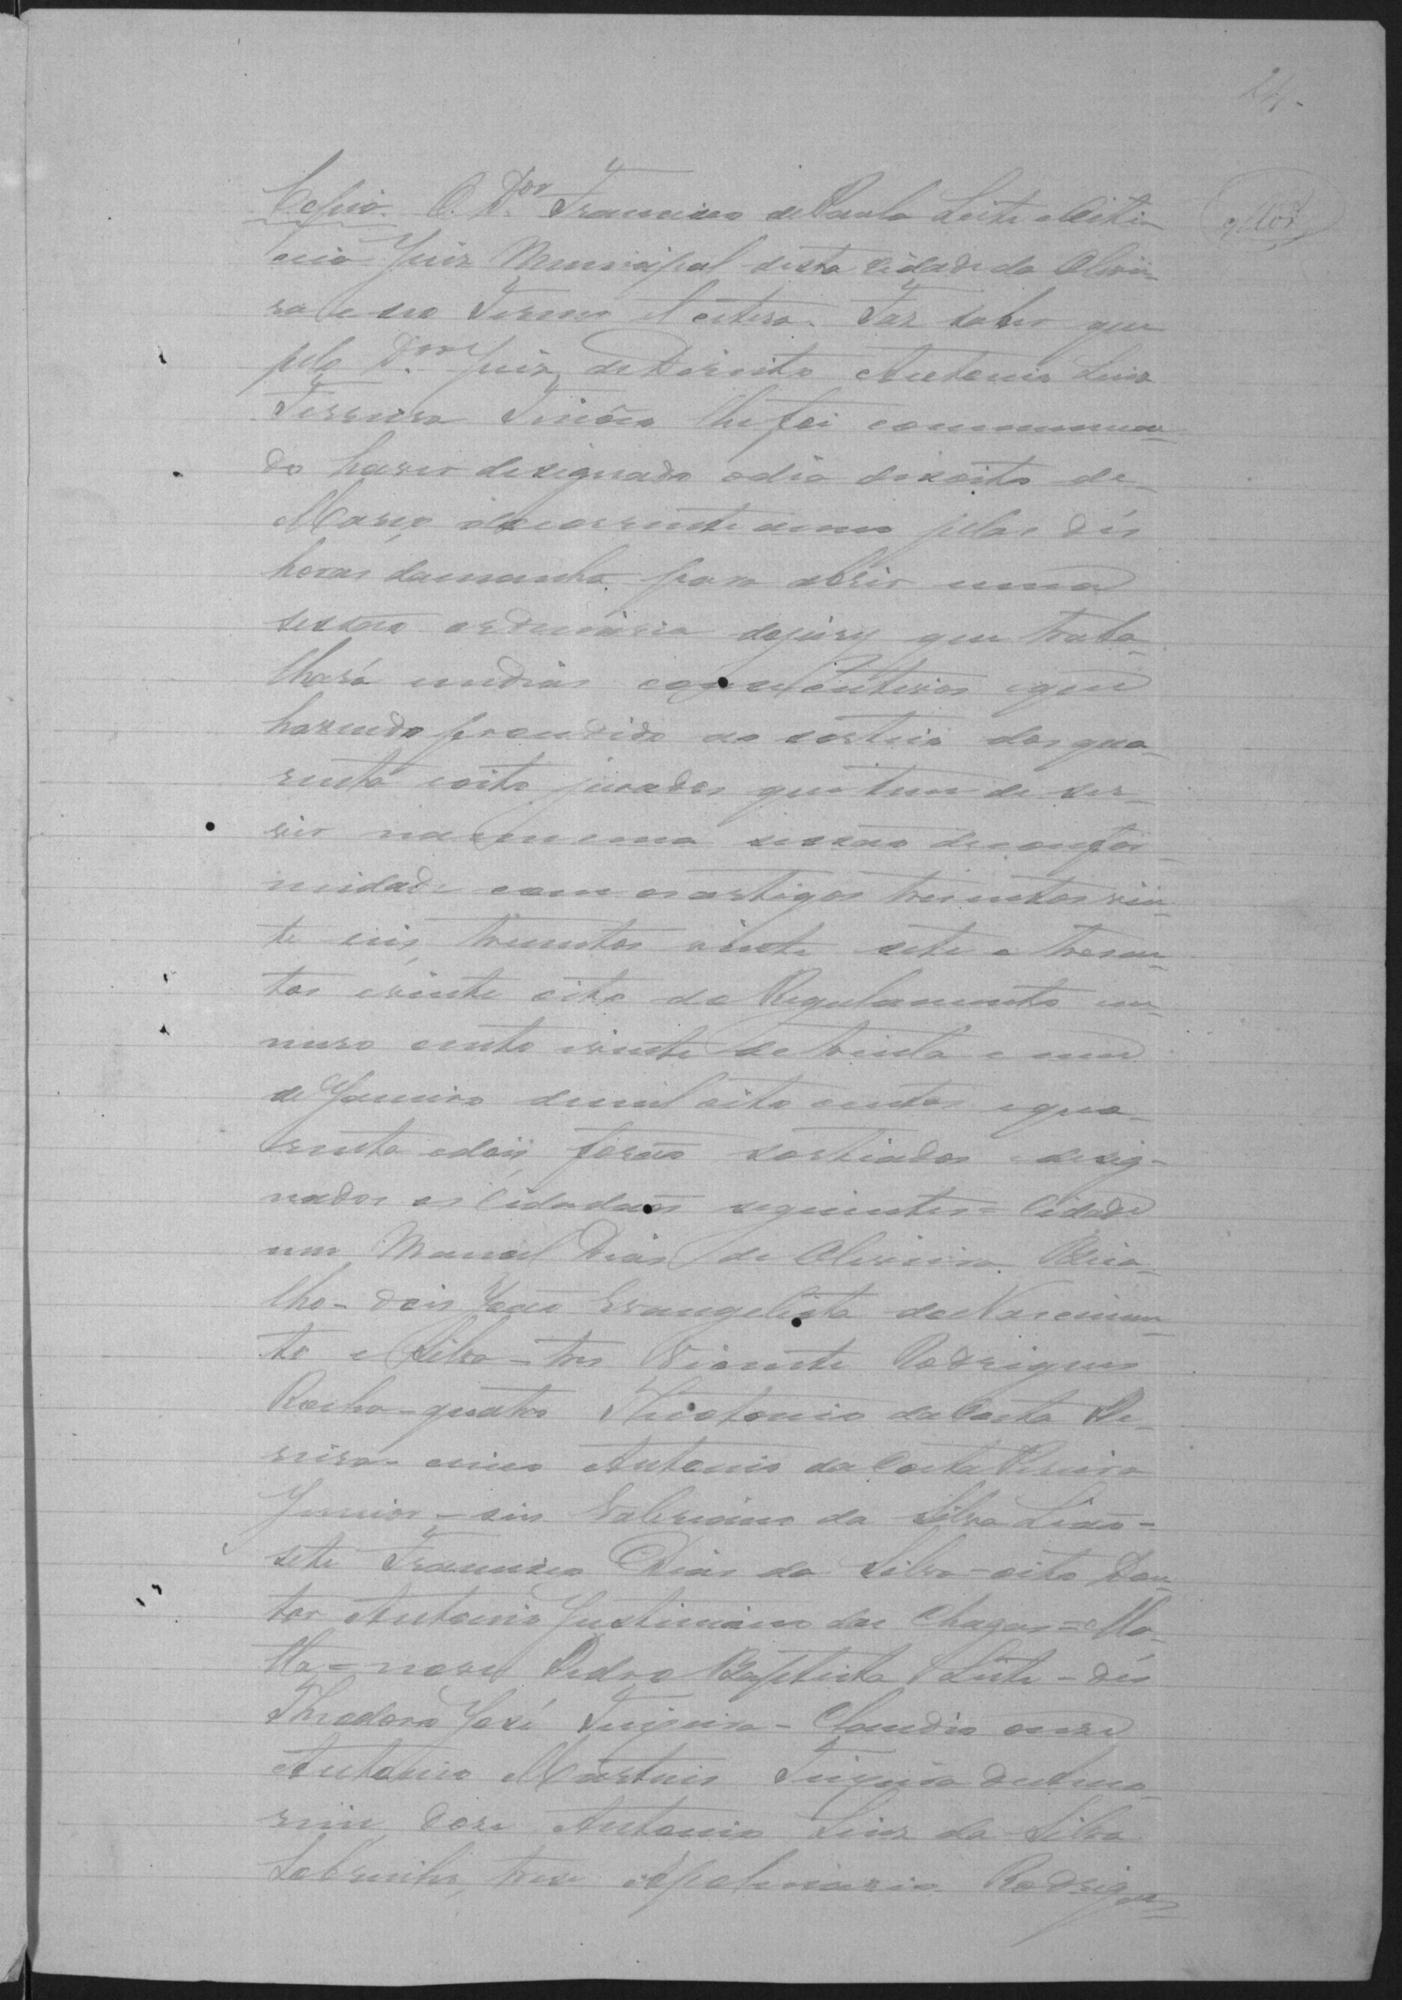 24.
Copia. O. Dor Francisco de Paula Leite e Oiti-
cica Juiz Municipal desta cidade da Olivei-
ra e seo Termo Etcetera. Faz saber que
pelo Dor Juiz de Direito Antonio Luiz
Ferreira Tinôco lhe foi communica-
do haver designado o dia dezoito de
Março do corrente anno pelas dés
horas da manhã para abrir uma
sessão ordinaria do jury que traba-
lhará em dias consecutivos e que
havendo procedido ao sorteio dos qua-
renta e oito jurados que tem de ser-
vir na mesma sessão de confor-
midade com os artigos tresentos vin-
te seis, tresentos vinte sete e tresen-
tos e vinte oito do Regulamento nu-
mero cento e vinte de trinta e um
de Janeiro de mil oito centos e qua-
renta e dois, forão sorteados e desig-
nados os Cidadãos seguintes = Cidade
um Manoel Dias de Oliveira
lho - dois João Evangelista do Nascimen-
to e Silva - tres Vicente Rodrigues
Rocha - quatro Theotonio da Costa Pe-
reira - cinco Antonio da Costa Pereira
Junior - seis Valeriano da Silva Leão -
sete Francisco Dias da Silva - oito Dou-
tor Antonio Justiniano das Chagas = Mo-
tta = nove Pedro Baptista Leite - dés
Theodoro José Teixeira - Claudio onze
Antonio Martins Teixeira de Ama-
rim, doze Antonio Luiz da Silva
Sobrinho, treze Apolinario Rodrigues